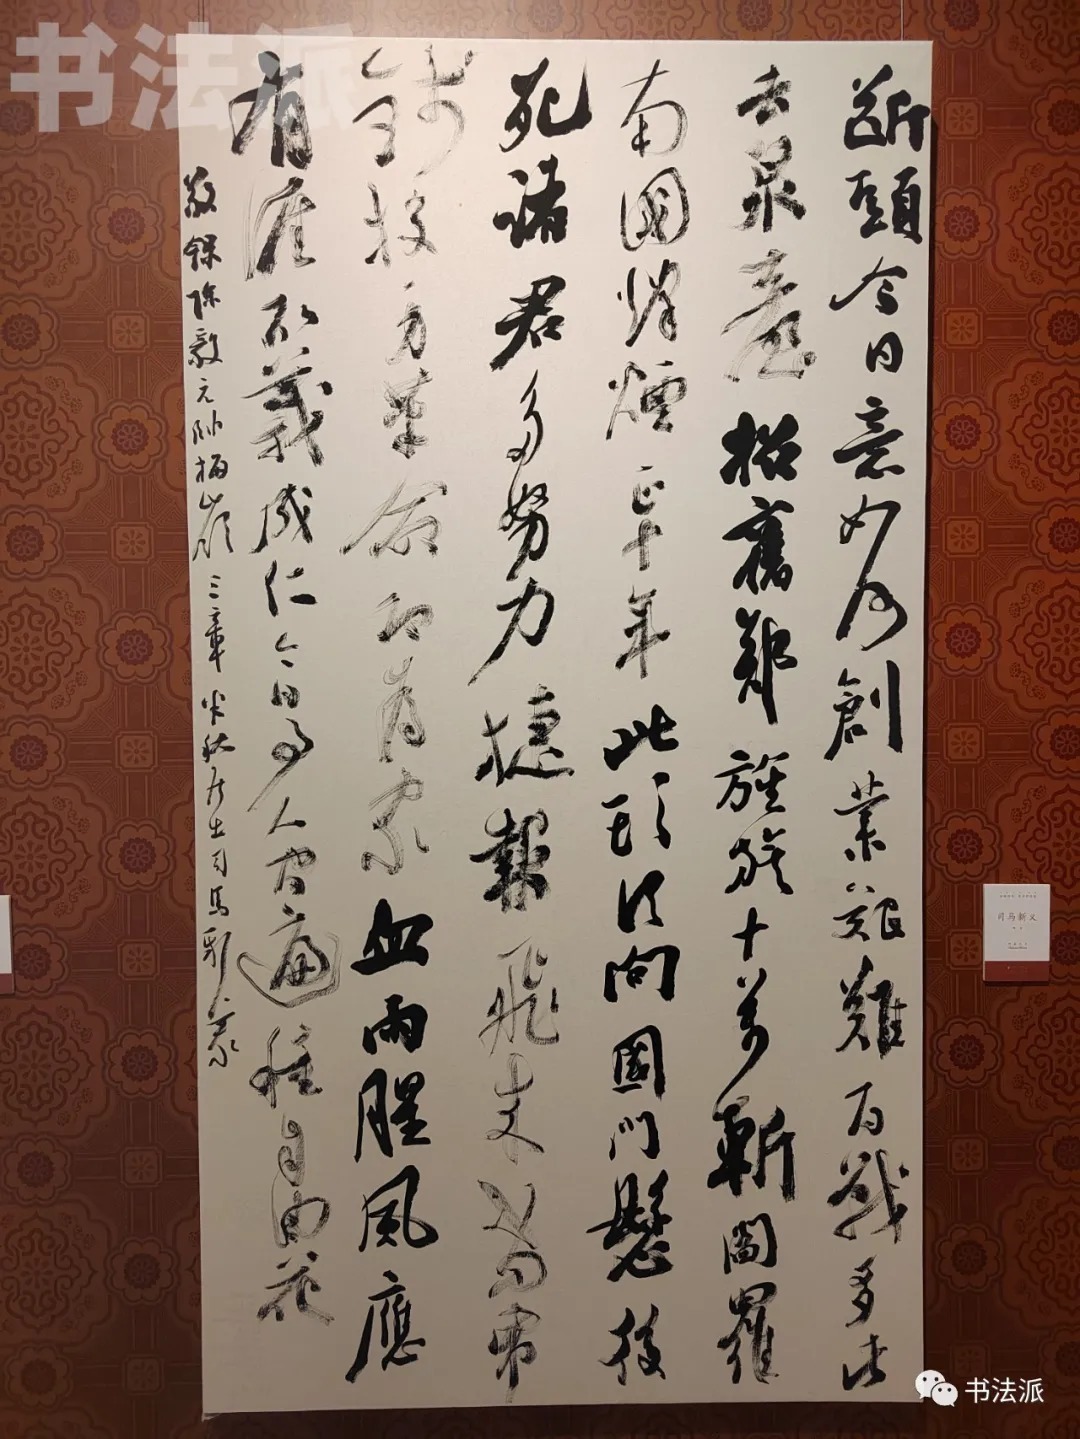 书法派
斷頭今日意如何創業艱難百戰多此
去泉臺招舊部旌旗十萬斬閻羅
南國烽煙正十年此頭須向國門懸後
死諸君多努力捷報飛來當紙
錢投身革命即為家血雨腥風應
有涯取義成仁今日事人間遍種自由花
敬錄陳毅元帥梅嶺三章 秋居士司馬
司马新义
书法派